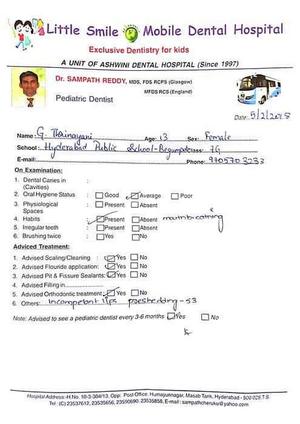 Little Smile Mobile Dental Hospital
Exclusive Dentistry for kids
A UNIT OF ASHWINI DENTAL HOSPITAL (Since 1997)
Dr. SAMPATH REDDY, MDS, FDS RCPS (Glasgow)
MFDS RCS (England)
Pediatric Dentist
Date: 5/2/2015
Name: G. Age: 13 Sex: Female
School: Hyderabad Public School-Begumpet 7G
E-mail: Phone: 9705703233
On Examination:
1. Dental Caries in :
(Cavities)
2. Oral Hygiene Status : Good Average Poor
3. Physiological : Present Absent
Spaces
4. Habits : Present Absent mouthbreathing
5. Irregular teeth : Present Absent
6. Brushing twice : Yes No
Adviced Treatment:
1. Advised Scaling/Cleaning : Yes No
2. Advised Flouride application: Yes No
3. Advised Pit & Fissure Sealants: Yes No
4. Advised Filling in
5. Advised Orthodontic treatment: Yes No
6. Others: Incompetent lips preshedding - 53
Note: Advised to see a pediatric dentist every 3-6 months Yes No
Hospital Address -H.No. 10-3-304/13, Opp. Post Office, Humayunnagar, Masab Tank, Hyderabad - 500 028.T.S.
Tel: (C) 23537612, 23535656, 23550690, 23535858, E-mail: sampathcheruku@yahoo.com